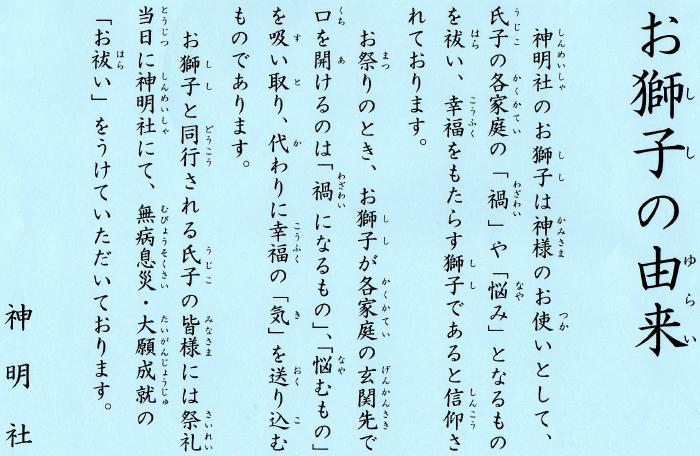 お獅子の由来
神明社のお獅子は神様のお使いとして、
氏子の各家庭の「禍」や「悩み」となるもの
を祓い、幸福をもたらす獅子であると信仰さ
れております。
お祭りのとき、お獅子が各家庭の玄関先で
口を開けるのは「禍になるもの」、「悩むもの」
を吸い取り、代わりに幸福の「気」を送り込む
ものであります。
お獅子と同行される氏子の皆様には祭礼
当日に神明社にて、無病息災・大願成就の
「お祓い」をうけていただいております。
神明社